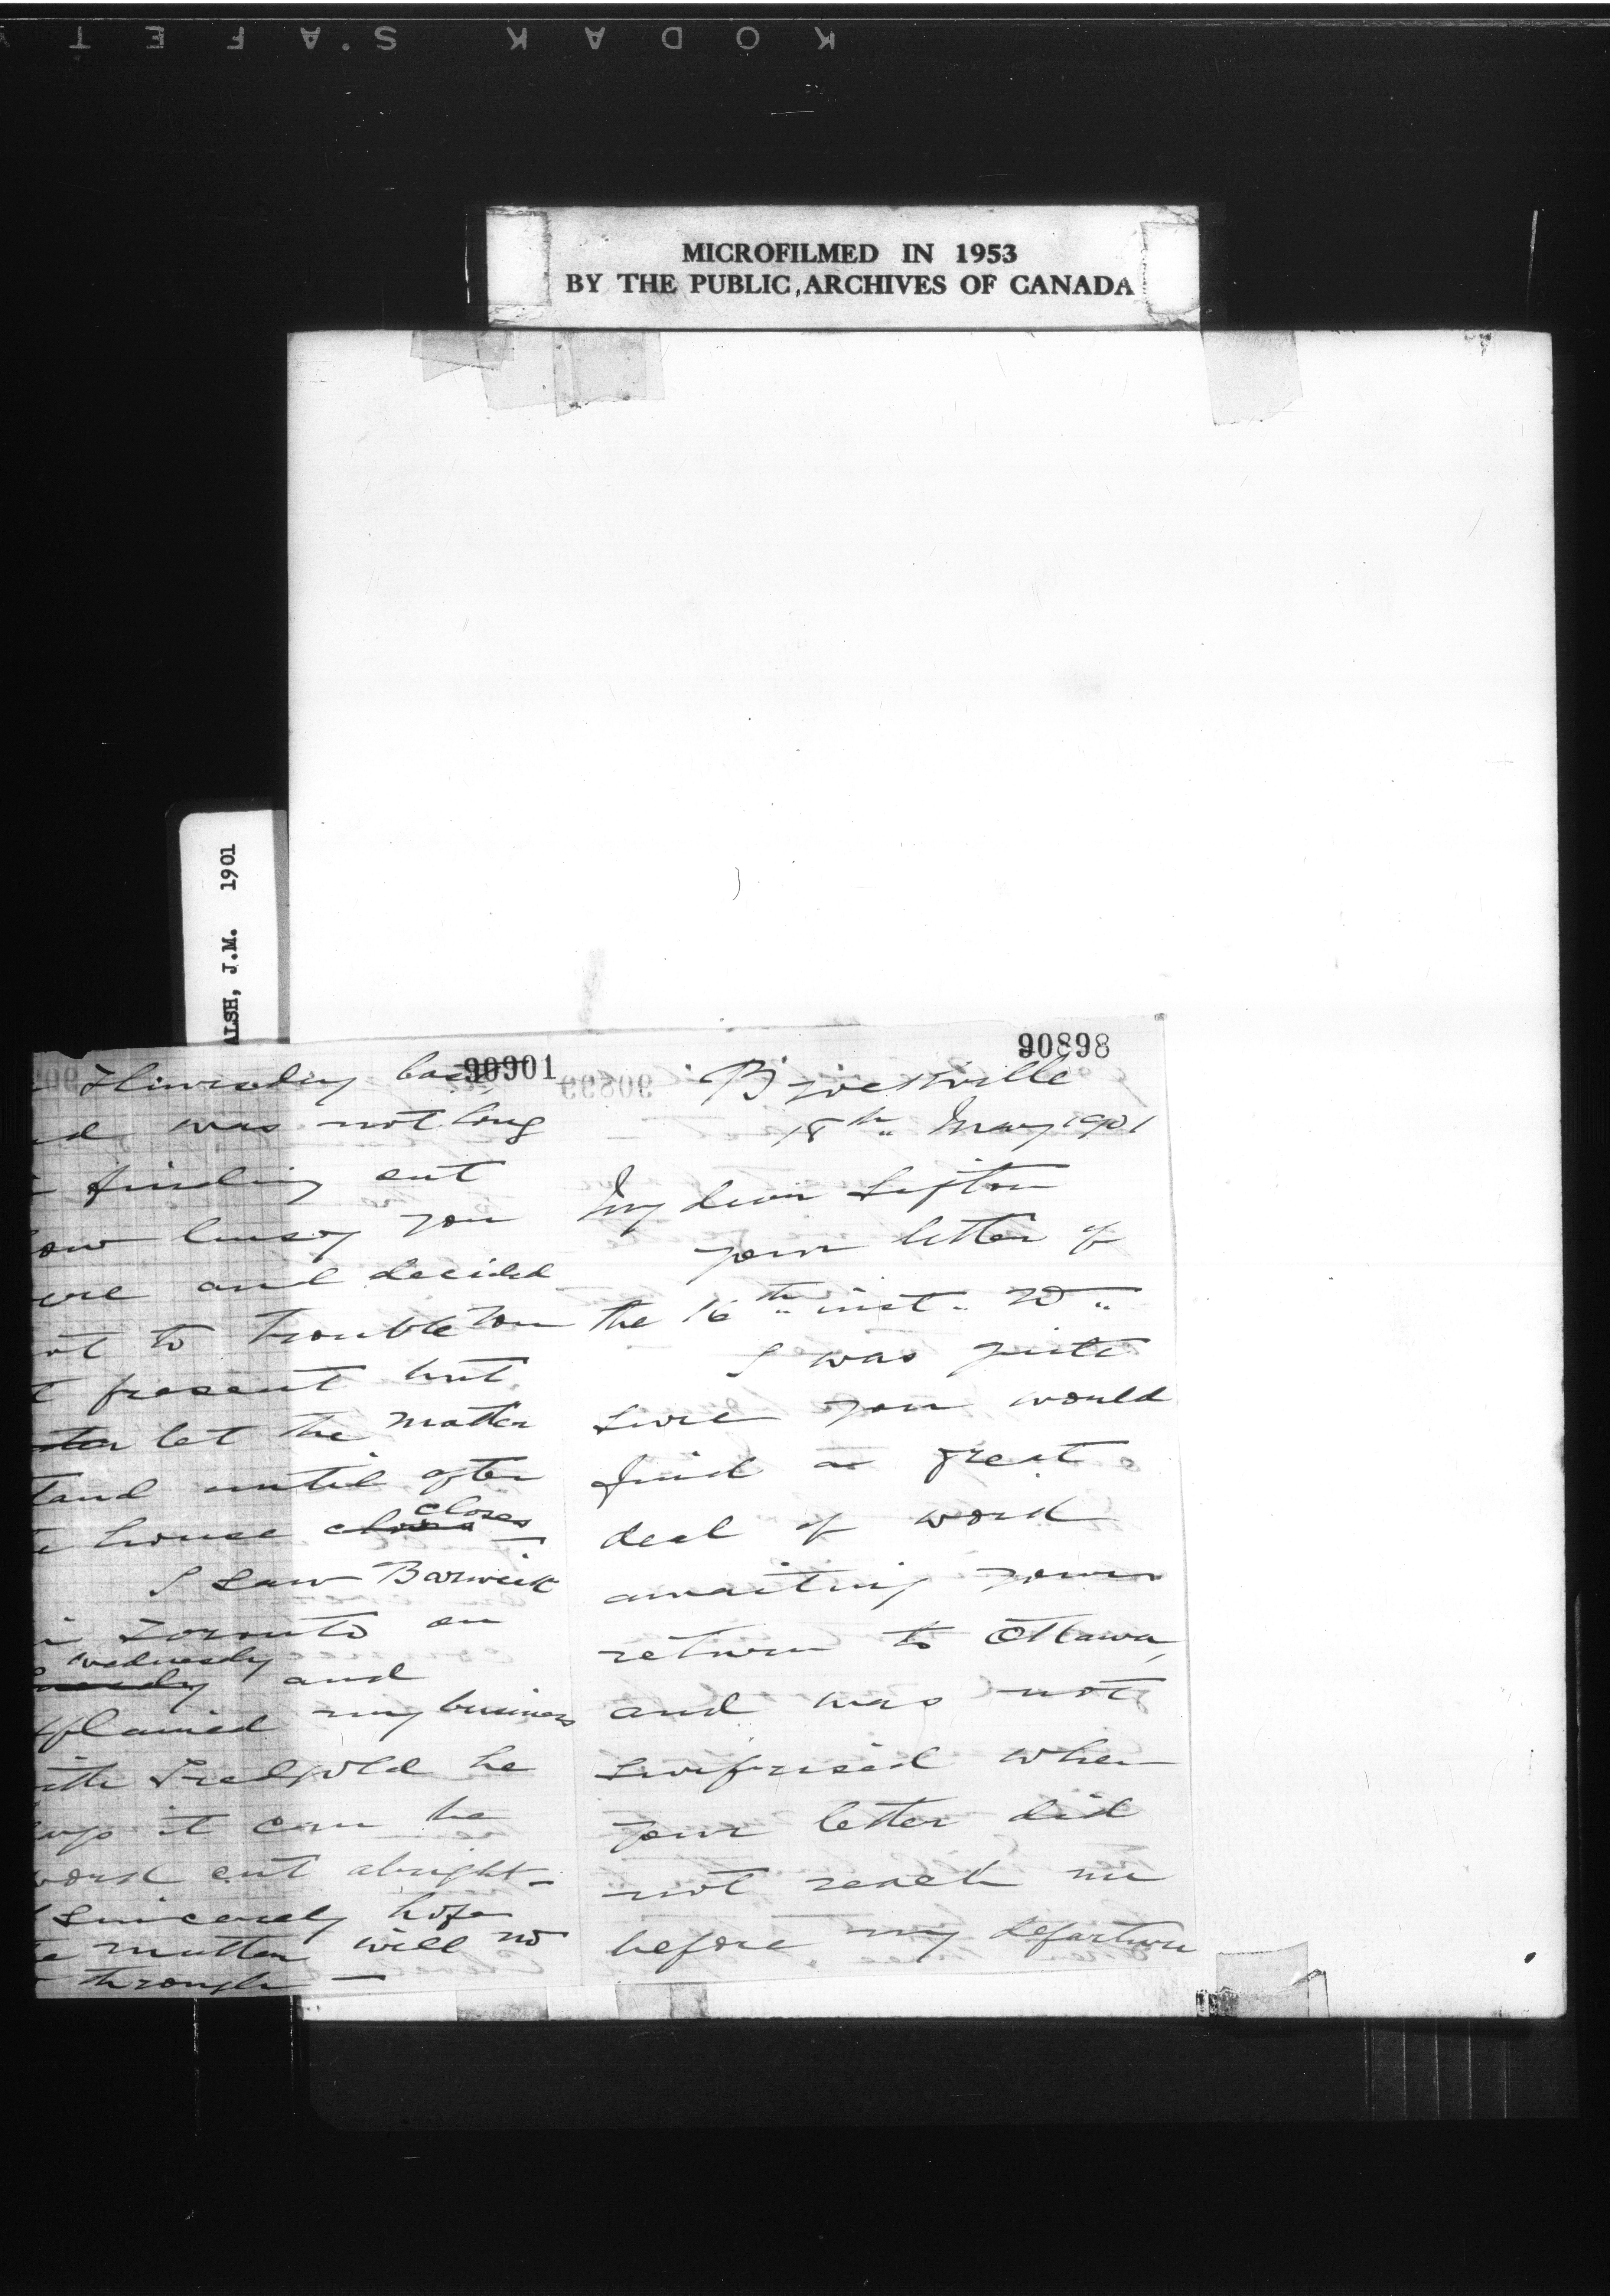 KODAK S.A.F.E.T
MICROFILMED IN 1953
BY THE PUBLIC ARCHIVES OF CANADA
ALSH, J.M. 1901
90898
Brockville
18th May 1901
My dear Sifton
your letter of
the 16th inst. rd
I was quite
sure you would
find a great
deal of work
awaiting your
return to Ottawa,
and was not
surprised when
your letter did
not reach me
before my departure
90901
Thursday last
d was not long
finding out
ow busy you
ere and decided
ot to trouble you
t present but
let the matter
tand until after
e house closes
I saw Barwick
in Toronto on
Wednesday
and
xplained my business
ith Treadgold he
ays it can be
work out alright -
I sincerely hope
e matter will no
through —